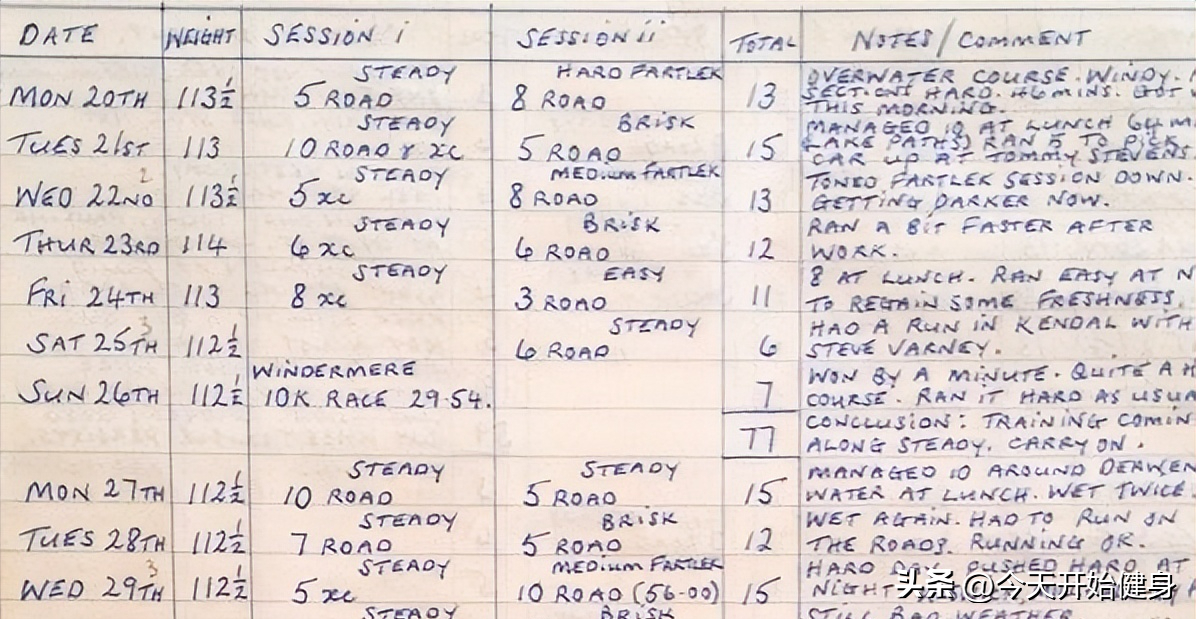 DATE WEIGHT SESSION i SESSION ii TOTAL NOTES/COMMENT
STEADY HARD FARTLEK OVERWATER COURSE. WINDY.
MON 20TH 113½ 5 ROAD 8 ROAD 13 SECTIONS HARD. 46 MINS. GOT
THIS MORNING.
STEADY BRISK MANAGED 10 AT LUNCH 64 MI
TUES 21ST 113 10 ROAD & XC 5 ROAD 15 LAKE PATHS) RAN 5 TO PICK
CAR UP AT TOMMY STEVENS
2 STEADY MEDIUM FARTLEK TONED FARTLEK SESSION DOWN.
WED 22ND 113½ 5 XC 8 ROAD 13 GETTING DARKER NOW.
STEADY BRISK RAN A BIT FASTER AFTER
THUR 23RD 114 6 XC 6 ROAD 12 WORK.
STEADY EASY 8 AT LUNCH. RAN EASY AT N
FRI 24TH 113 8 XC 3 ROAD 11 TO REGAIN SOME FRESHNESS.
3 STEADY HAD A RUN IN KENDAL WITH
SAT 25TH 112½ 6 ROAD 6 STEVE VARNEY.
WINDERMERE WON BY A MINUTE. QUITE A H
SUN 26TH 112½ 10K RACE 29-54. 7 COURSE. RAN IT HARD AS USUA
77 CONCLUSION: TRAINING COMIN
ALONG STEADY. CARRY ON.
STEADY STEADY MANAGED 10 AROUND DERWEN
MON 27TH 112½ 10 ROAD 5 ROAD 15 WATER AT LUNCH. WET TWICE
STEADY BRISK WET AGAIN. HAD TO RUN ON
TUES 28TH 112½ 7 ROAD 5 ROAD 12 THE ROADS. RUNNING OK.
3 STEADY MEDIUM FARTLEK HARD DAY. PUSHED HARD AT
WED 29TH 112½ 5 XC 10 ROAD (56-00) 15 NIGHT
STEADY BRISK STILL BAD WEATHER
头条 @今天开始健身